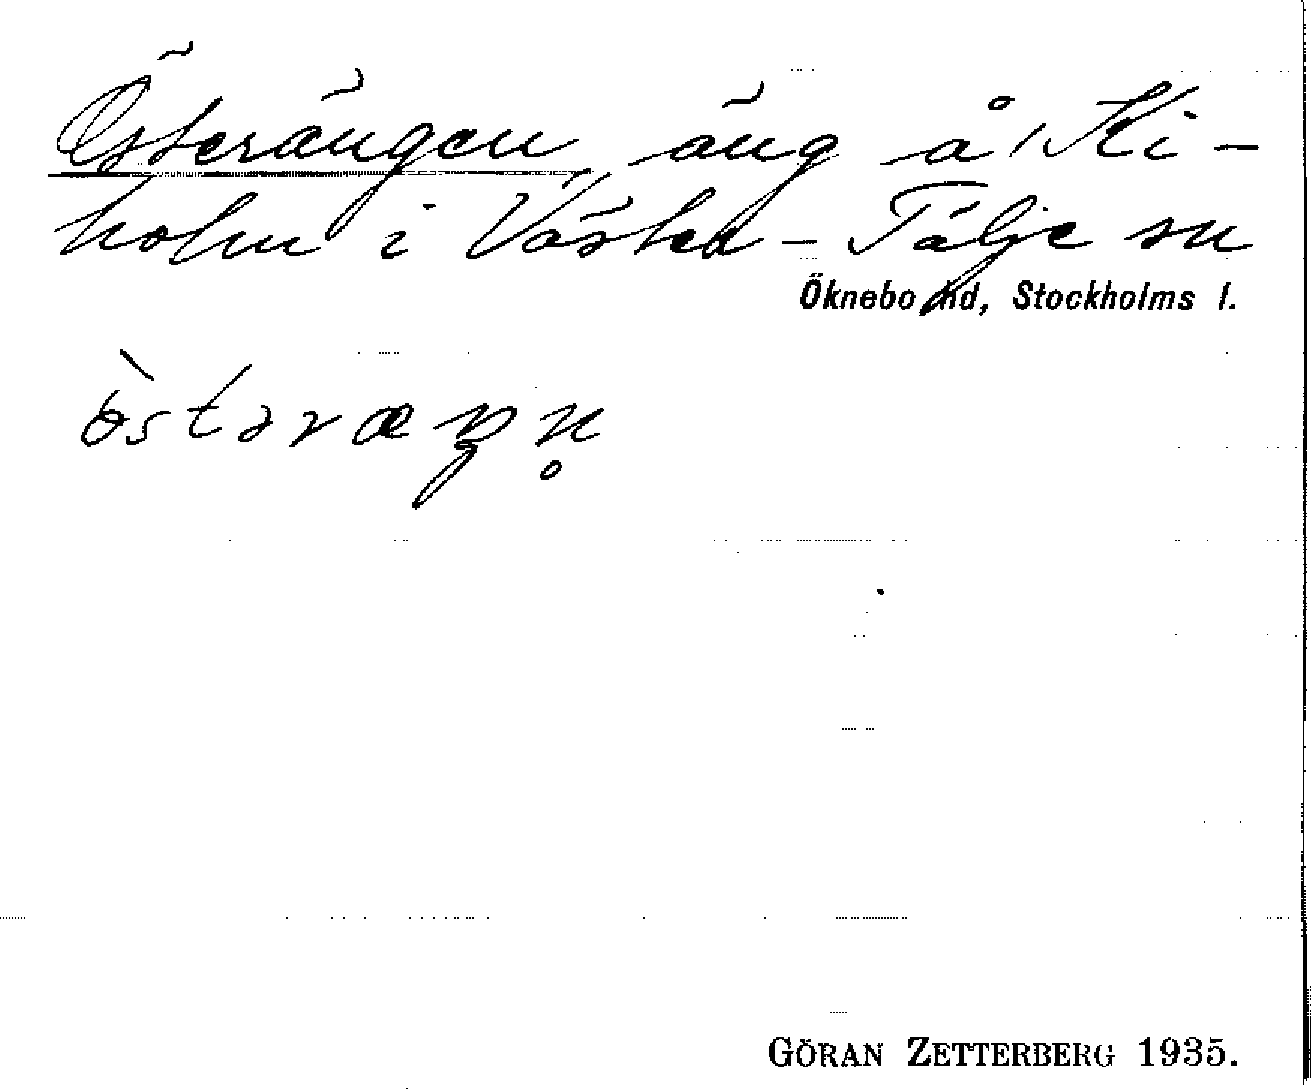 Österängen, äng å Ki-
holm i Västra-Tälje sn
Öknebo hd, Stockholms l.
Göran Zetterberg 1935.